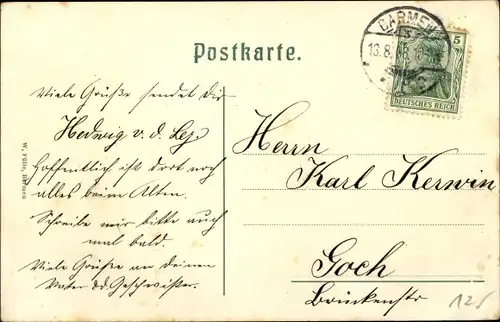 Postkarte.
BARMEN
16.8.
5
DEUTSCHES REICH
Viele Grüße sendet Dir
Hedwig v. d. Ley.
Hoffentlich ist dort noch
alles beim Alten.
Schreibe mir bitte auch
mal bald.
Viele Grüße an Deinen
Vater u. d. Geschwister.
W. Fülle, Barmen
Herrn
Karl Kerwin
Goch
Brückenstr
125